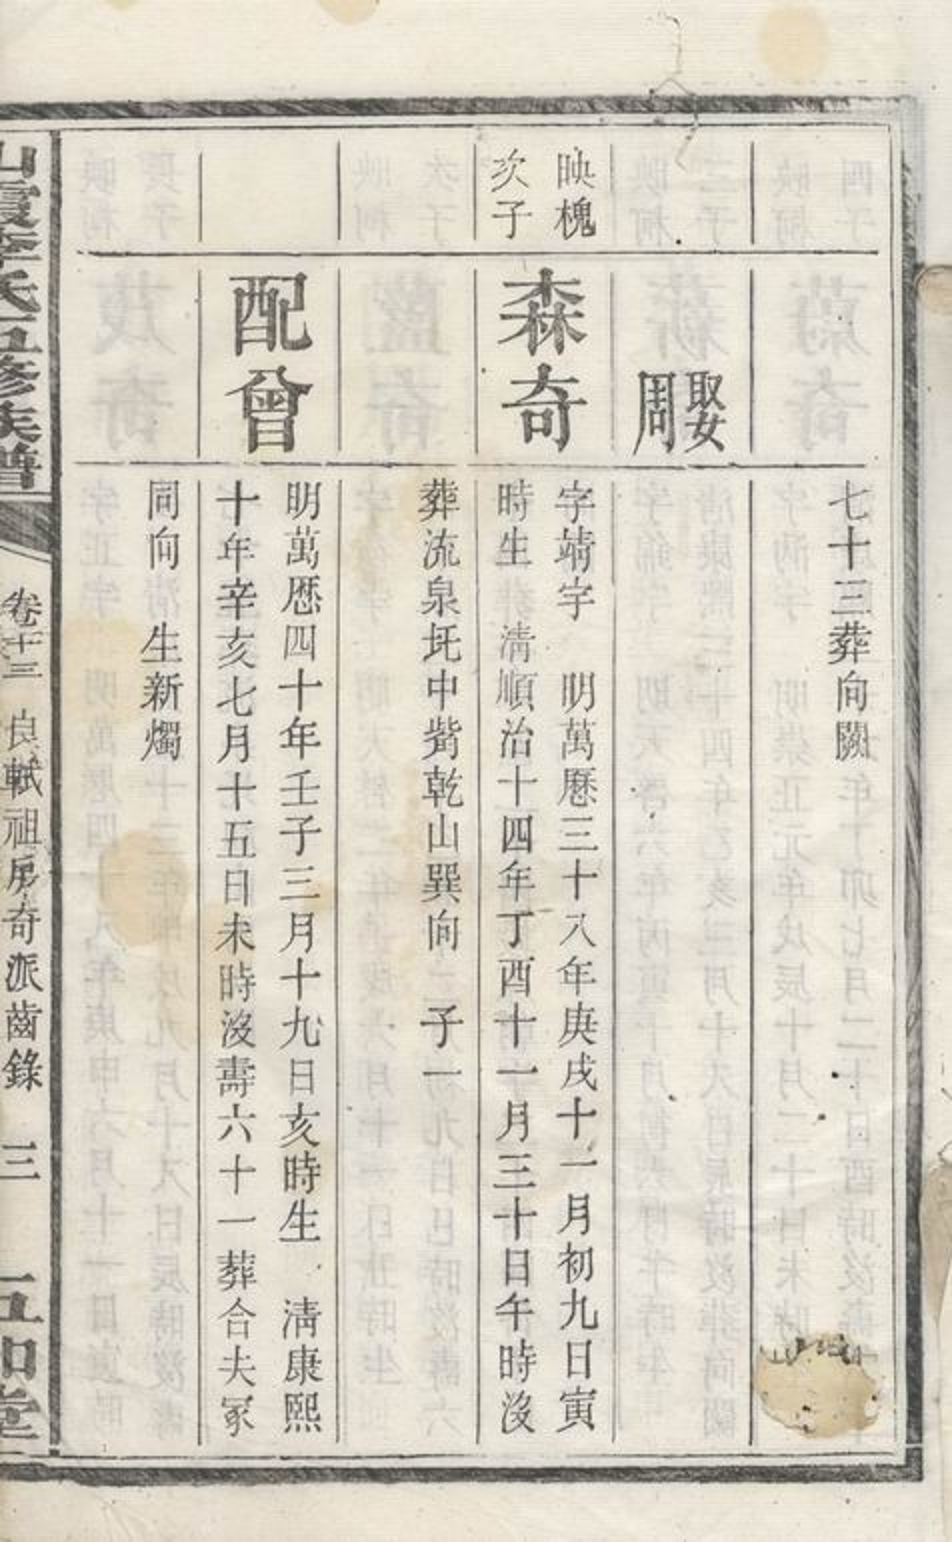 七十三葬向闕
娶周
映槐
次子
森奇
字靖字　明萬曆三十八年庚戌十一月初九日寅
時生　清順治十四年丁酉十一月三十日午時沒
葬流泉圫中嘴乾山巽向　子一
配曾
明萬曆四十年壬子三月十九日亥時生　清康熙
十年辛亥七月十五日未時沒壽六十一葬合夫冢
同向　生新燭
山霞李氏五修族譜
卷十三　良軾祖房奇派齒錄　三　五知堂